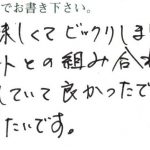 でお書き下さい。
美味しくてビックリしま
ートとの組み合わ
していて良かったで
たいです。